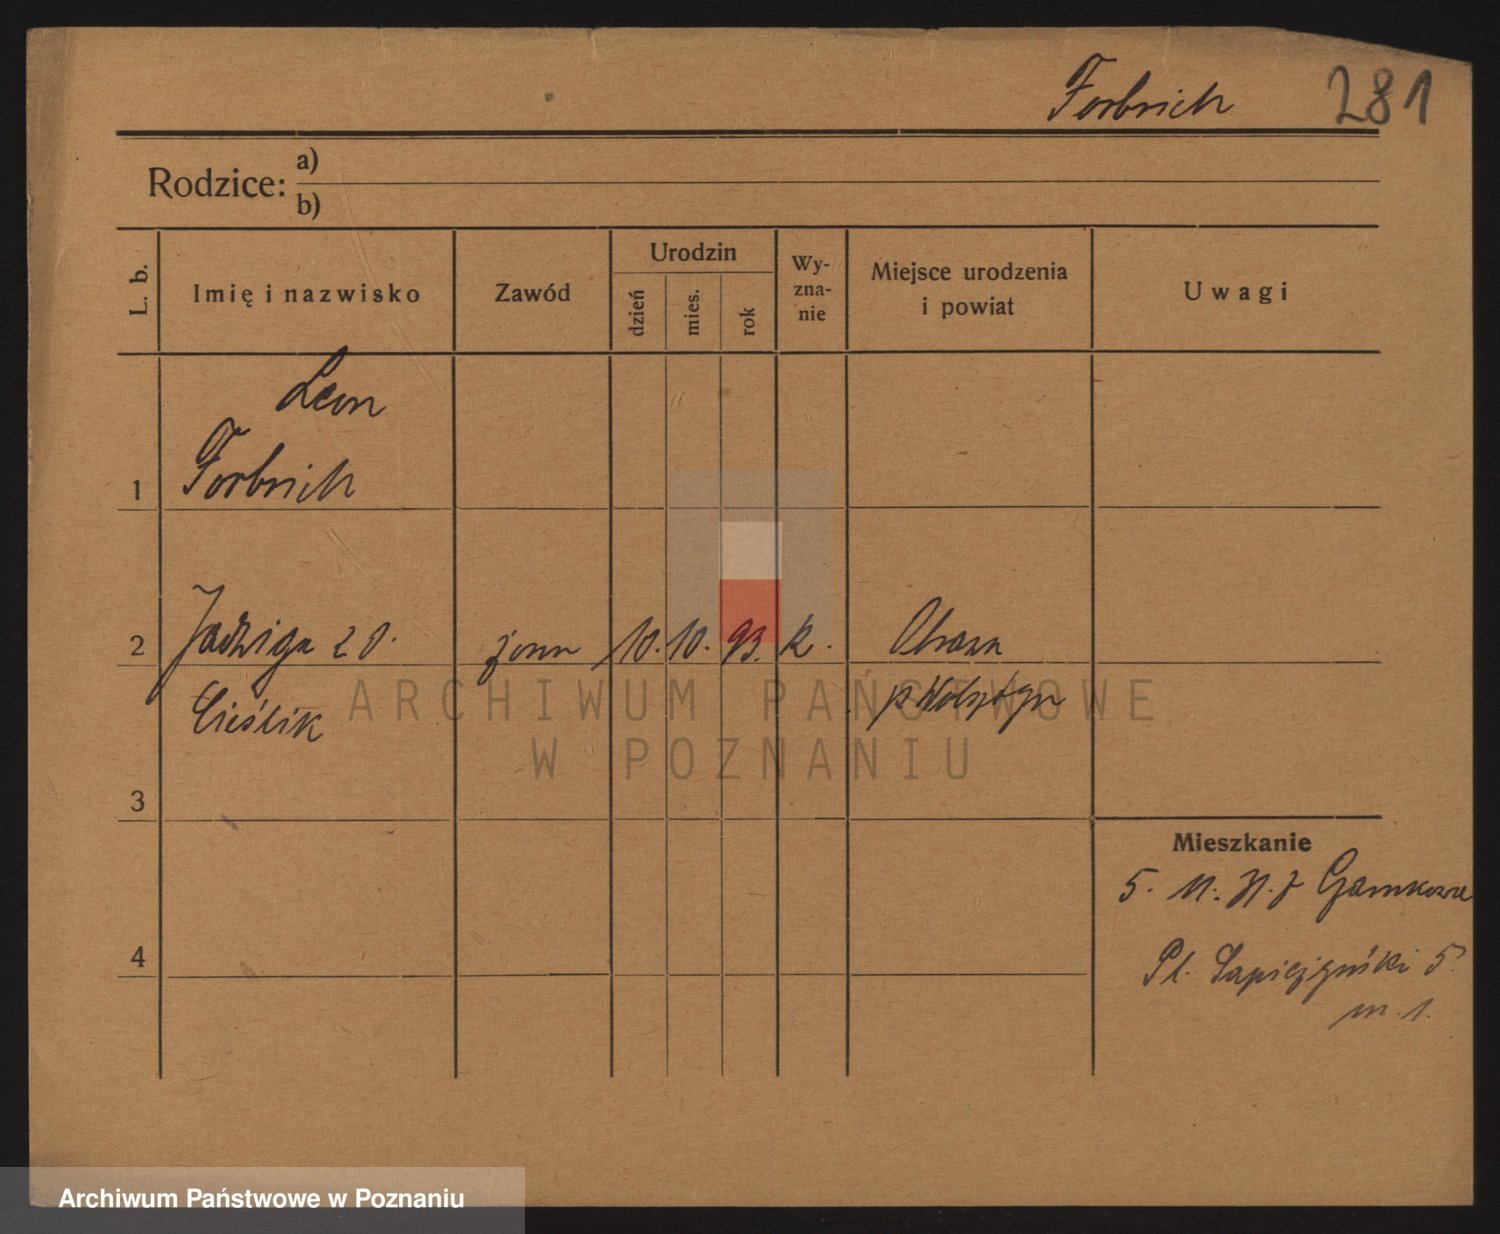 Forbrich 281
Rodzice: a)
b)
L. b.
Imię i nazwisko
Zawód
Urodzin
dzień
mies.
rok
Wy-
zna-
nie
Miejsce urodzenia
i powiat
Uwagi
Leon
1 Forbrich
2 Jadwiga z d. żona 10. 10. 93. k. Obra
Cieślik p Wolsztyn
ARCHIWUM PAŃSTWOWE
W POZNANIU
3
Mieszkanie
5.
4
Pl. Sapieżyński 5
m. 1.
Archiwum Państwowe w Poznaniu